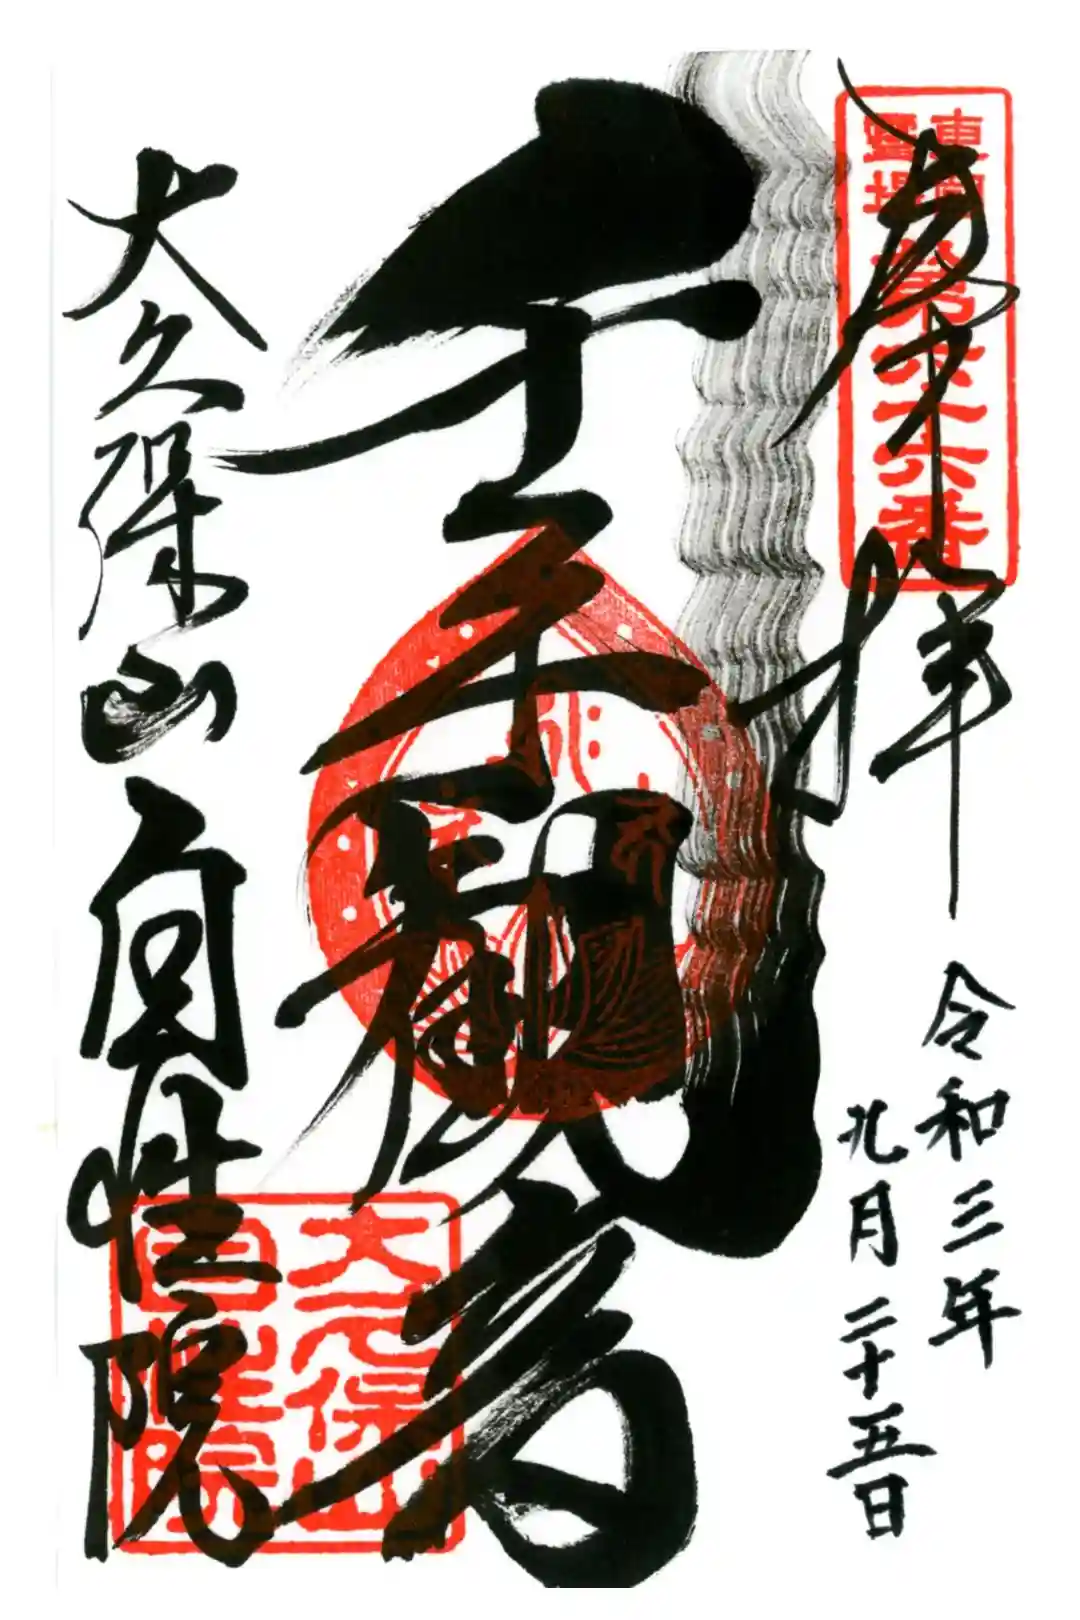 奉拝
令和三年
九月二十五日
千手観音
大久保山自性院
大久保山
自性院